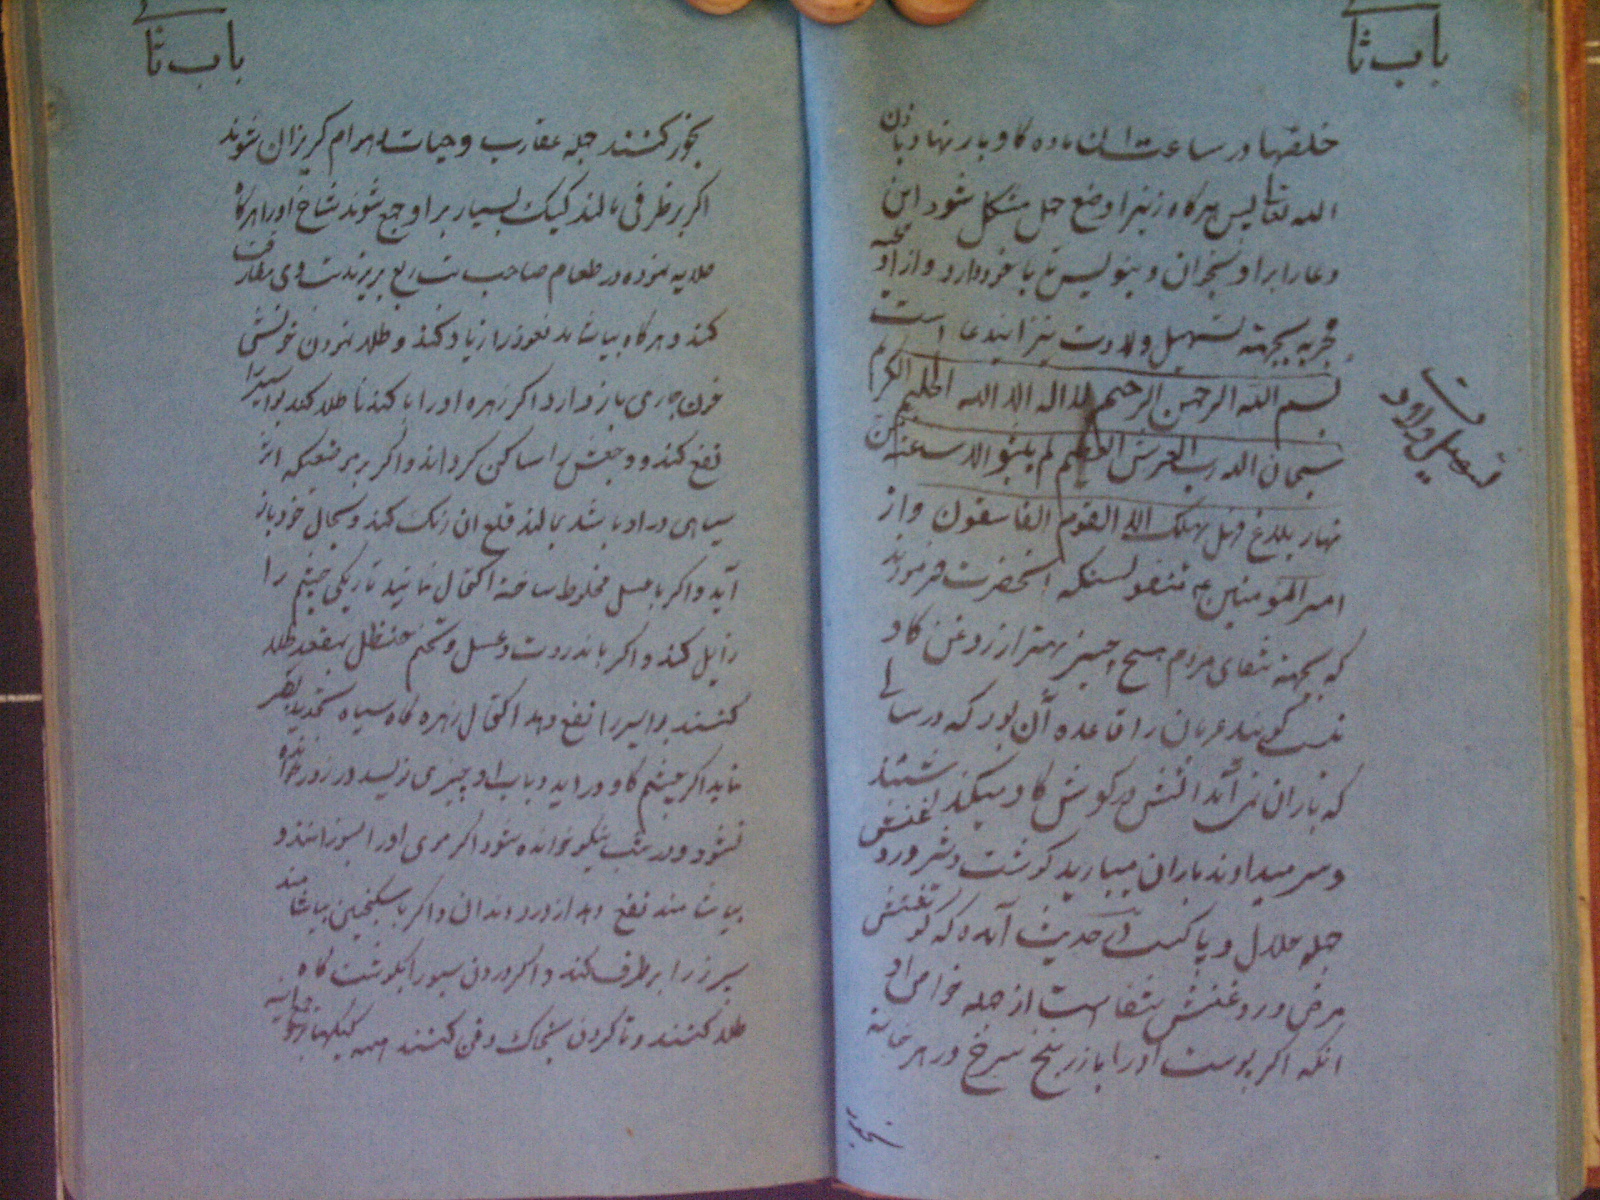 باب ثا
خلقتها در ساعت ان ماده کاو بار نهاد باذن
الله تعالی پس هرکاه زنیرا وضع حمل مشکل شود این
دعا را بر او بخوان و بنویس تا با خود دارد و از ادعیه
مجربه بجهته تسهیل ولادت نیز ایندعا است
بسم الله الرحمن الرحیم لا اله الا الله الحلیم الکریم
سبحان الله رب العرش العظیم لم یلبثوا الا ساعة من
نهار بلاغ فهل یهلک الا القوم الفاسقون و از
امیر المومنین ع منقولستکه انحضرت فرمودند
که بجهته شفای مردم هیچ چیز بهتر از روغن کاو
نیست کویند عربان را قاعده آن بود که در سالی
که باران نمی آمد اتش در کوش کاو میکند
و سر میدادند باران میبارید کوشت و شیر و روغنش
جمله حلال و پاکست در حدیث آمده که کوشتش
مرض و روغنش شفا است از جمله خواص او
انکه اکر پوست او را با زرنیخ سرخ در هر خانه
تسهیل ولادت
بخور
باب ثا
بخور کنند جمله عقارب و حیات و هوام کریزان شوند
اکر بر ظرفی مالند کیک بسیار بر او جمع شوند شاخ او را هرکاه
صلایه نموده در طعام صاحب تب ربع بریزند تب وی مفارقت
کند و هرکاه بیاشامد نعوذ را زیاد کند و طلا نمودن خونش
خون جاری باز دارد اکر زهره او را با کندنا طلا کنند بواسیر را
نفع کند و وجعش را ساکن کرداند و اکر بر موضعیکه اثر
سیاهی در او باشد بمالند قلع ان رنک کند و بحال خود باز
آید و اکر با عسل مخلوط ساخته اکتحال نمایند تاریکی چشم را
زایل کند و اکر با نوره و عسل و تخم حنظل بمقعد طلا
کنند بواسیر را نفع دهد اکتحال زهره کاو سیاه تحدید بصر
نماید اکر چشم کاو در اید و باب او چیزی نویسد در روز خوانده
نشود و در شب نیکو خوانده شود اکر موی او را بسوزانند و
بیاشامند نفع دهد از درد دندان و اکر با سکنجبین بیاشامند
سپرز را برطرف کند و اکر درون سبو را بکوشت کاو
طلا کنند و تا کردن بخاک دفن کنند همه کیکها